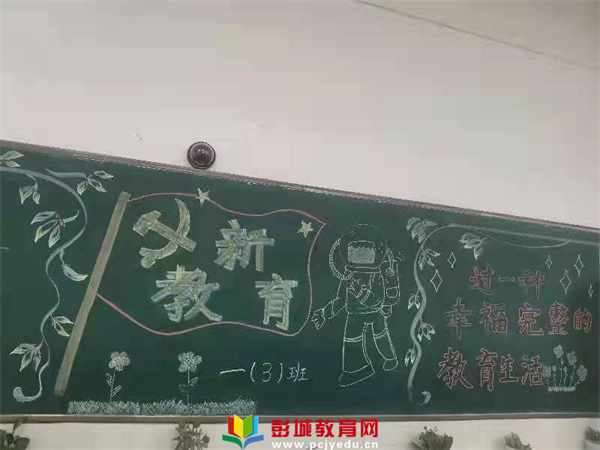 新
教育
一(3)班
过一种
幸福完整的
教育生活
彭城教育网
www.pcjyedu.cn